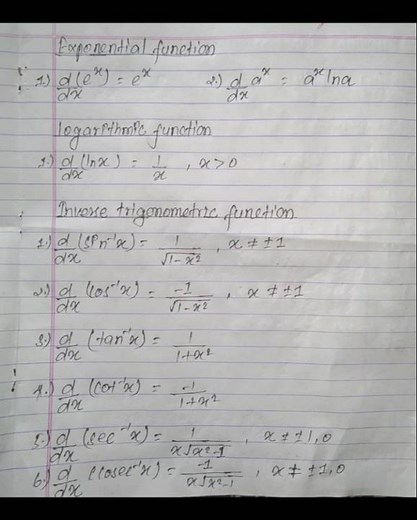 Exponential function
1) d/dx (e^x) = e^x    2.) d/dx a^x = a^x ln a
logarithmic function
1.) d/dx (ln x) = 1/x , x > 0
Inverse trigonometric function
1.) d/dx (sin⁻¹x) = 1/√(1-x²) , x ≠ ±1
2.) d/dx (cos⁻¹x) = -1/√(1-x²) , x ≠ ±1
3.) d/dx (tan⁻¹x) = 1/(1+x²)
4.) d/dx (cot⁻¹x) = -1/(1+x²)
5.) d/dx (sec⁻¹x) = 1/(x√(x²-1)) , x ≠ ±1,0
6.) d/dx (cosec⁻¹x) = -1/(x√(x²-1)) , x ≠ ±1,0